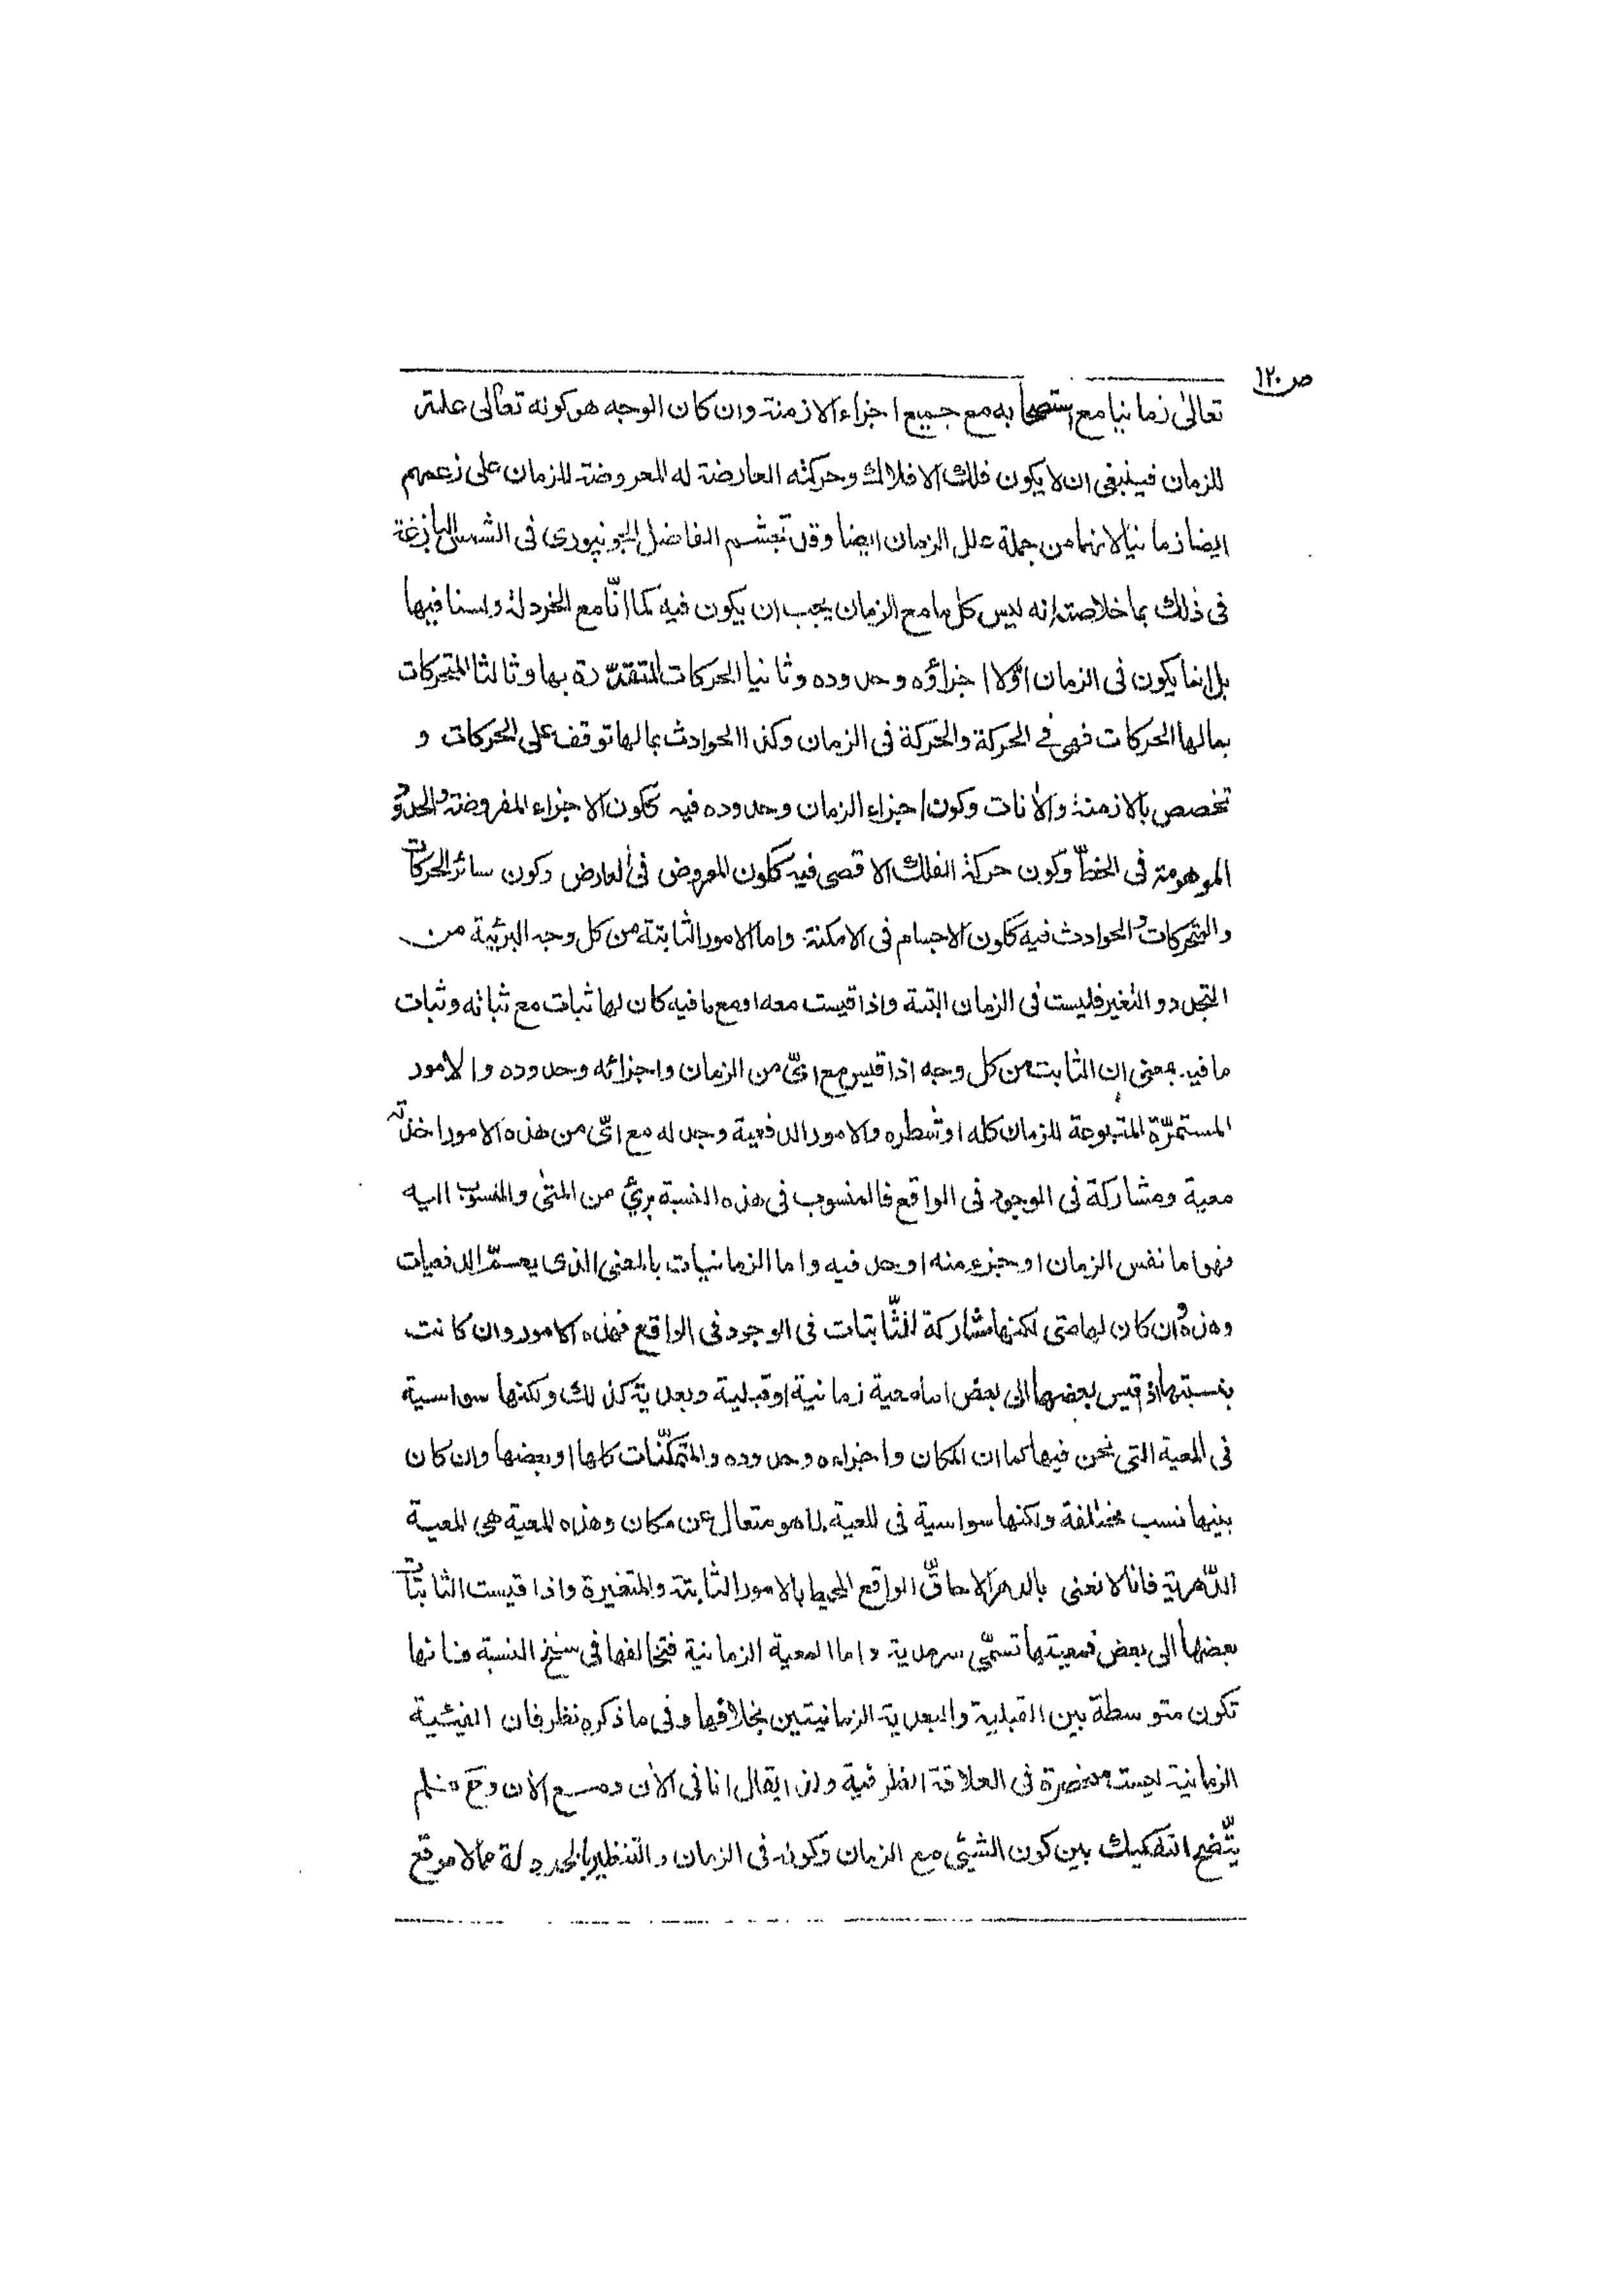 ص ١٢٠
تعالىٰ زمانيا مع استصحابه مع جميع اجزاء الازمنة وان كان الوجه هو كونه تعالى علة
للزمان فينبغى ان لا يكون فلك الافلاك وحركته العارضة له المعروضة للزمان على زعمهم
ايضا زمانيا لانهما من جملة علل الزمان ايضا وقد تجشم الفاضل الجونپورى فى الشمس البازغة
فى ذٰلك بما خلاصته انه ليس كل ما مع الزمان يجب ان يكون فيه كما انّا مع الخردلة ولسنا فيها
بل انما يكون فى الزمان اوّلا اجزاؤه وحدوده وثانيا الحركات المتقدّرة بها وثالثا المتحركات
بمالها الحركات فهى فے الحركة والحركة فى الزمان وكذا الحوادث بمالها توقف على الحركات و
تخصص بالازمنة والاٰنات وكون اجزاء الزمان وحدوده فيه ككون الاجزاء المفروضة والحدود
الموهومة فى الخط وكون حركة الفلك الاقصى فيه ككون المعروض فى العارض وكون سائر الحركات
والمتحركات والحوادث فيه ككون الاجسام فى الامكنة واما الامور الثابتة من كل وجه البريّة من
التجدد و التغير فليست فى الزمان البتة واذا قيست معه او مع ما فيه كان لها ثبات مع ثباته وثبات
ما فيه بمعنى ان الثابت من كل وجه اذا قيس مع اىّ من الزمان واجزائه وحدوده والامور
المستمرّة المتبوعة للزمان كله او شطره والامور الدفعية وجد له مع اىّ من هذه الامور اخذته
معية ومشاركة فى الوجود فى الواقع فالمنسوب فى هذه النسبة برئ من المتىٰ والمنسوب اليه
فهو اما نفس الزمان او جزء منه او حد فيه واما الزمانيات بالمعنى الذى يعمّ الدفعيات
وهذه وان كان لها متى لكنها مشاركة للثّابتات فى الوجود فى الواقع فهذه الامور وان كانت
بنسبتها اذ قيس بعضها الى بعض اما معية زمانية او قبلية وبعدية كذلك ولكنها سواسية
فى المعية التى نحن فيها كما ان المكان واجزاءه وحدوده والمتمكّنات كلها او بعضها وان كان
بينها نسب مختلفة ولكنها سواسية فى المعية لما هو متعال عن مكان وهذه المعية هى المعية
الدّهرية فانا لا نعنى بالدهر الا حاقّ الواقع المحيط بالامور الثابتة والمتغيرة واذا قيست الثابتات
بعضها الى بعض فمعيتها تسمّى سرمدية واما المعية الزمانية فتخالفها فى سنخ النسبة فانها
تكون متوسطة بين القبلية والبعدية الزمانيتين بخلافها وفى ما ذكره نظر فان الفيئية
الزمانية ليست منحصرة فى العلاقة الظرفية ولذا يقال انا فى الاٰن ومع الاٰن وح فلم
يتّضح التفكيك بين كون الشيئ مع الزمان وكونه فى الزمان والتنظير بالخردلة مما لا موقع